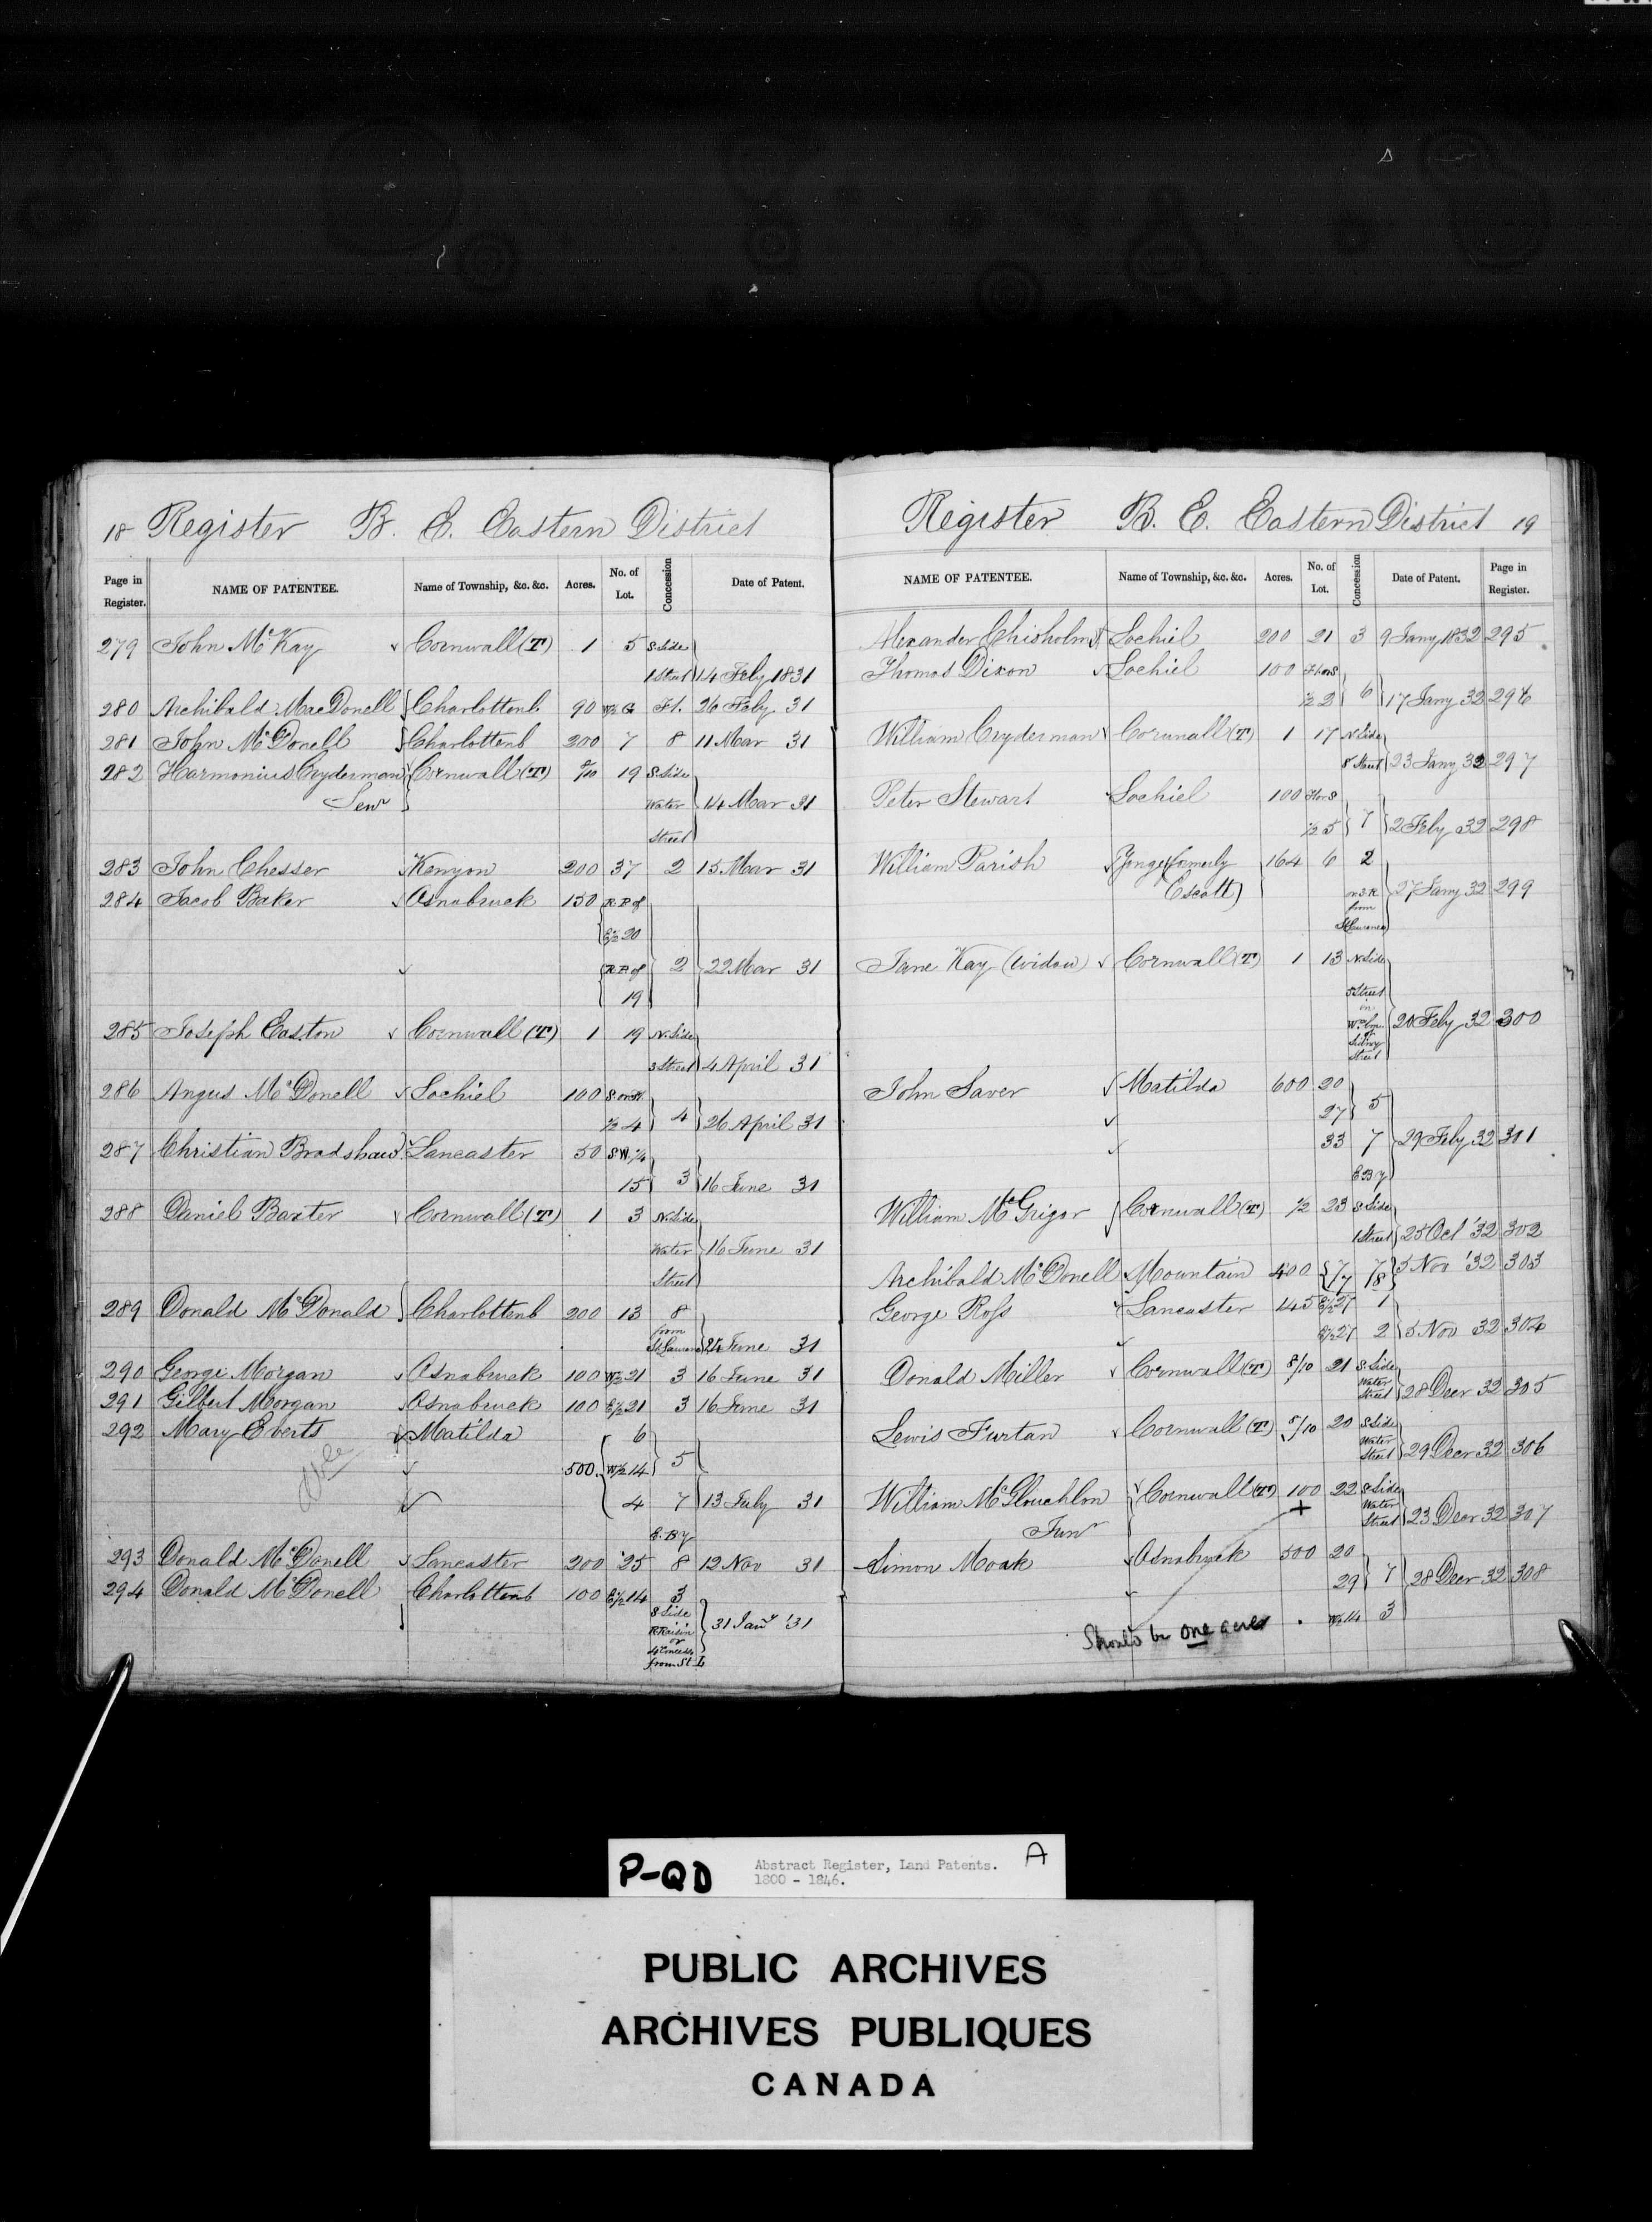 18 Register B. E. Eastern District
Page in Register. NAME OF PATENTEE. Name of Township, &c. &c. Acres. No. of Lot. Concession Date of Patent.
279 John McKay Cornwall (T) 1 5 S. Side
1 Street 14 Feby 1831
280 Archibald MacDonell Charlottenb 90 W½ G Ft. 26 Feby 31
281 John McDonell Charlottenb 200 7 8 11 Mar 31
282 Harmonius Cryderman Cornwall (T) 19 S. Side
Senr Water 14 Mar 31
Street
283 John Chesser Kenyon 200 37 2 15 Mar 31
284 Jacob Baker Osnabruck 150 R. P. of
E½ 20
R. P. of 2 22 Mar 31
19
285 Joseph Easton Cornwall (T) 1 19 N. Side
3 Street 4 April 31
286 Angus McDonell Lochiel 100 S or R
½ 4 4 26 April 31
287 Christian Bradshaw Lancaster 50 SW ¼
15 3 16 June 31
288 Daniel Baxter Cornwall (T) 1 3 N. Side
Water 16 June 31
Street
289 Donald McDonald Charlottenb 200 13 8
from
St Lawrence June 31
290 George Morgan Osnabruck 100 W½ 21 3 16 June 31
291 Gilbert Morgan Osnabruck 100 E½ 21 3 16 June 31
292 Mary Everts Matilda 6
500 W½ 14 5
4 7 13 July 31
E. B y
293 Donald McDonell Lancaster 200 25 8 12 Nov 31
294 Donald McDonell Charlottenb 100 E½ 14 3
S Side
R Raisin 31 Jany '31
or
4 Concess
from St L
Register B. E. Eastern District 19
NAME OF PATENTEE. Name of Township, &c. &c. Acres. No. of Lot. Concession Date of Patent. Page in Register.
Alexander Chisholm Lochiel 200 21 3 9 Jany 1832 295
Thomas Dixon Lochiel 100
½ 2 6 17 Jany 32 296
William Cryderman Cornwall (T) 1 17 N. Side
8 Street 23 Jany 32 297
Peter Stewart Lochiel 100
½ 5 7 2 Feby 32 298
William Parish Yonge (formerly 164 6 2
Escott) 27 Jany 32 299
from
St Lawrence
Jane Kay (Widow) Cornwall (T) 1 13 N. Side
5 Street
in
20 Feby 32 300
Sidney
Street
John Saver Matilda 600 20
27 5
33 7 29 Feby 32 301
E B y
William McGrigor Cornwall (T) ½ 23 S. Side
1 Street 25 Oct '32 302
Archibald McDonell Mountain 400 7 7 5 Nov '32 303
7 8
George Ross Lancaster 145 E½ 27 1
E½ 27 2 5 Nov 32 304
Donald Miller Cornwall (T) 8/10 21 S. Side
Water
Street 28 Decr 32 305
Lewis Furtan Cornwall (T) 20 S. Side
Water
Street 29 Decr 32 306
William McGlouchlon Cornwall (T) 100 22 S. Side
+ Water
Junr Street 23 Decr 32 307
Simon Moak Osnabruck 500 20
29 7 28 Decr 32 308
W½ 14 3
Should be one acres
P-QD Abstract Register, Land Patents. A
1800 - 1846.
PUBLIC ARCHIVES
ARCHIVES PUBLIQUES
CANADA